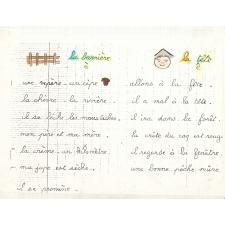 la barrière
è
une vipère . un cèpe
la chèvre . la rivière .
il se lèche les moustaches .
mon père et ma mère .
la crème . un kilomètre .
ma jupe est sèche .
il se promène .
la fête
ê
allons à la fête .
il a mal à la tête .
il ira dans la forêt .
la crête du coq est rouge
il regarde à la fenêtre .
une bonne pêche mûre .